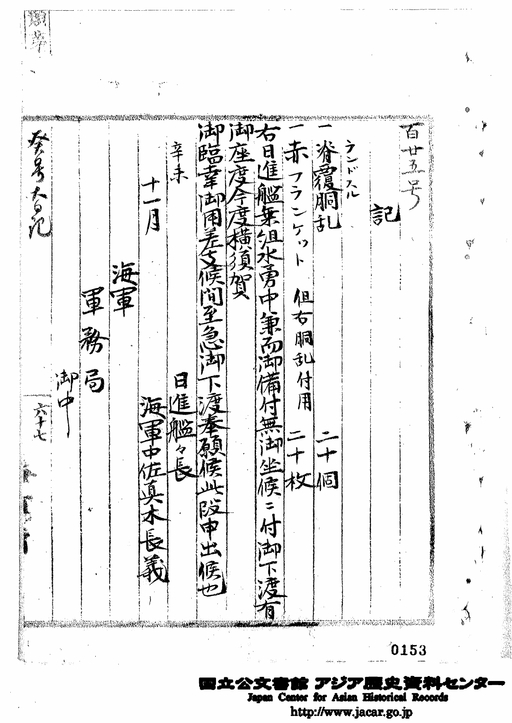 百廿五号
記
ランドスル
一脊覆胴乱 二十個
一赤フランケット 但右胴乱付用 二十枚
右日進艦乗組水勇中兼而御備付無御坐候ニ付御下渡有
御座度今度横須賀
御臨幸御用差支候間至急御下渡奉願候此段申出候也
辛未
十一月
日進艦々長
海軍中佐真木長義
海軍
軍務局
御中
癸号大日記
六十七
0153
国立公文書館 アジア歴史資料センター
Japan Center for Asian Historical Records
http://www.jacar.go.jp